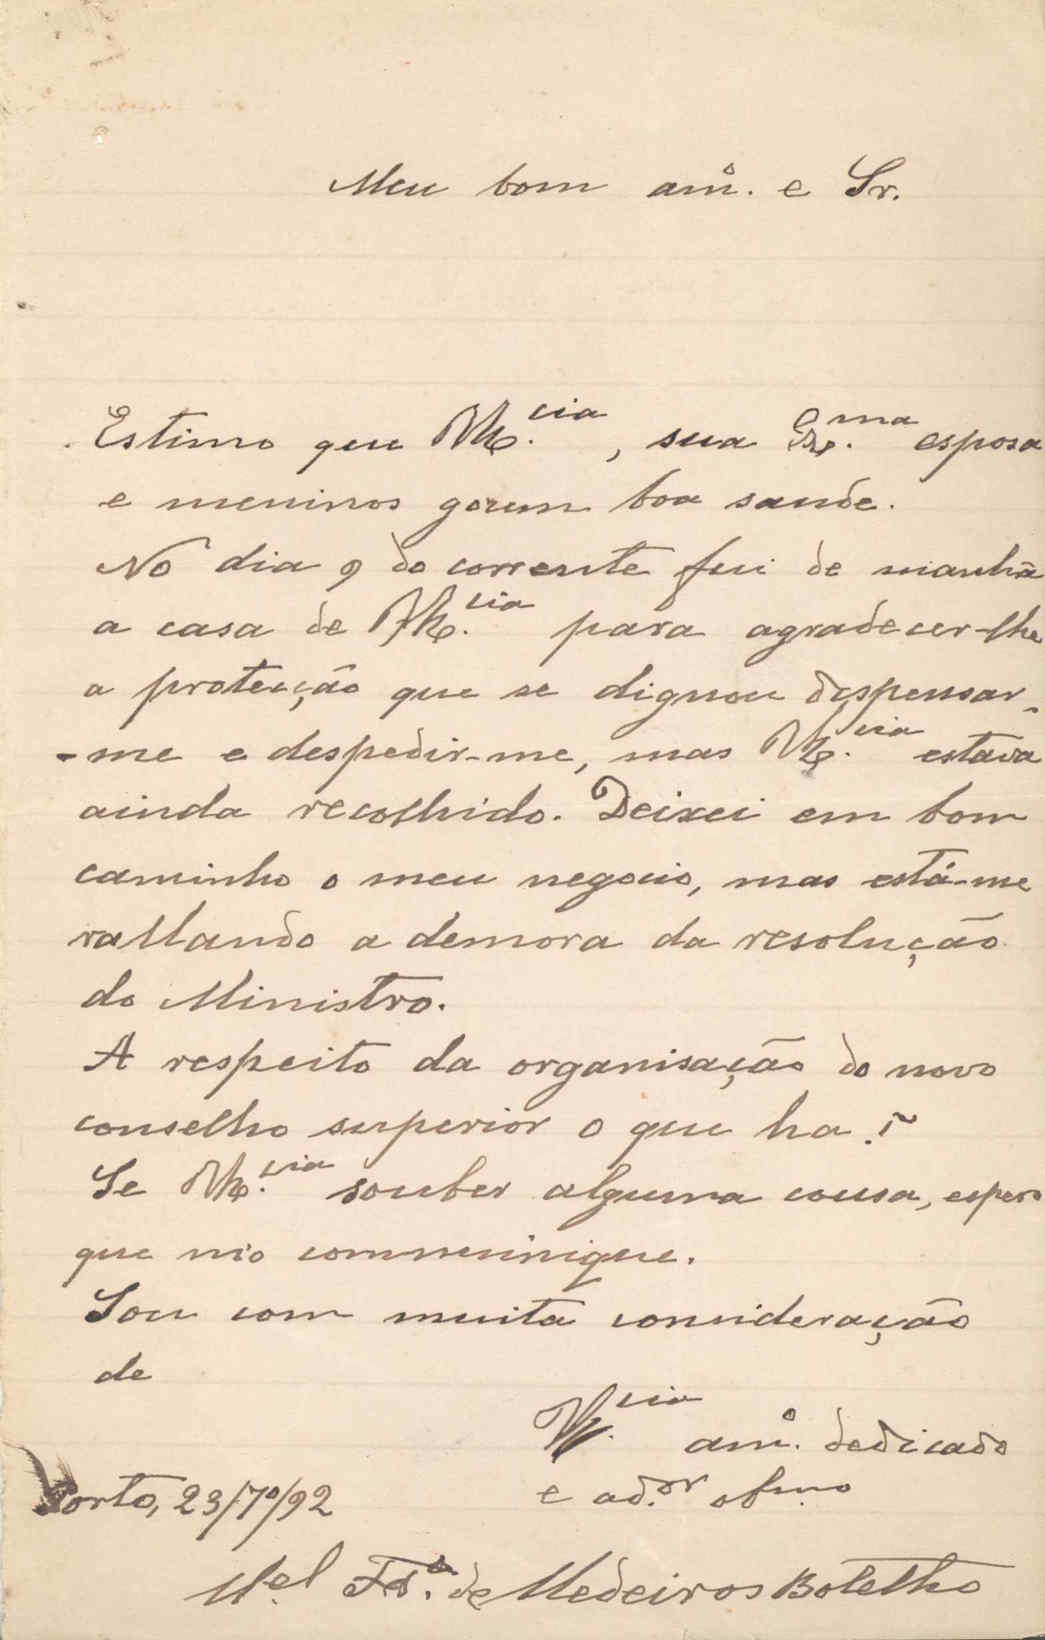 Meu bom am.º e Sr.
Estimo que V.Ex.cia, sua Ex.ma esposa
e meninos gozem boa saude.
No dia 9 do corrente fui de manhã
a casa de V.Ex.cia para agradecer-lhe
a protecção que se dignou dispensar-
-me e despedir-me, mas V.Ex.cia estava
ainda recolhido. Deixei em bom
caminho o meu negocio, mas está-me
rallando a demora da resolução
do Ministro.
A respeito da organisação do novo
conselho superior o que ha?
Se V.Ex.cia souber alguma cousa, espero
que m'o communique.
Sou com muita consideração
de
V. cia am.º dedicado
e ad.or obr.mo
Porto, 23/7º/92
M.el F. de Medeiros Botelho